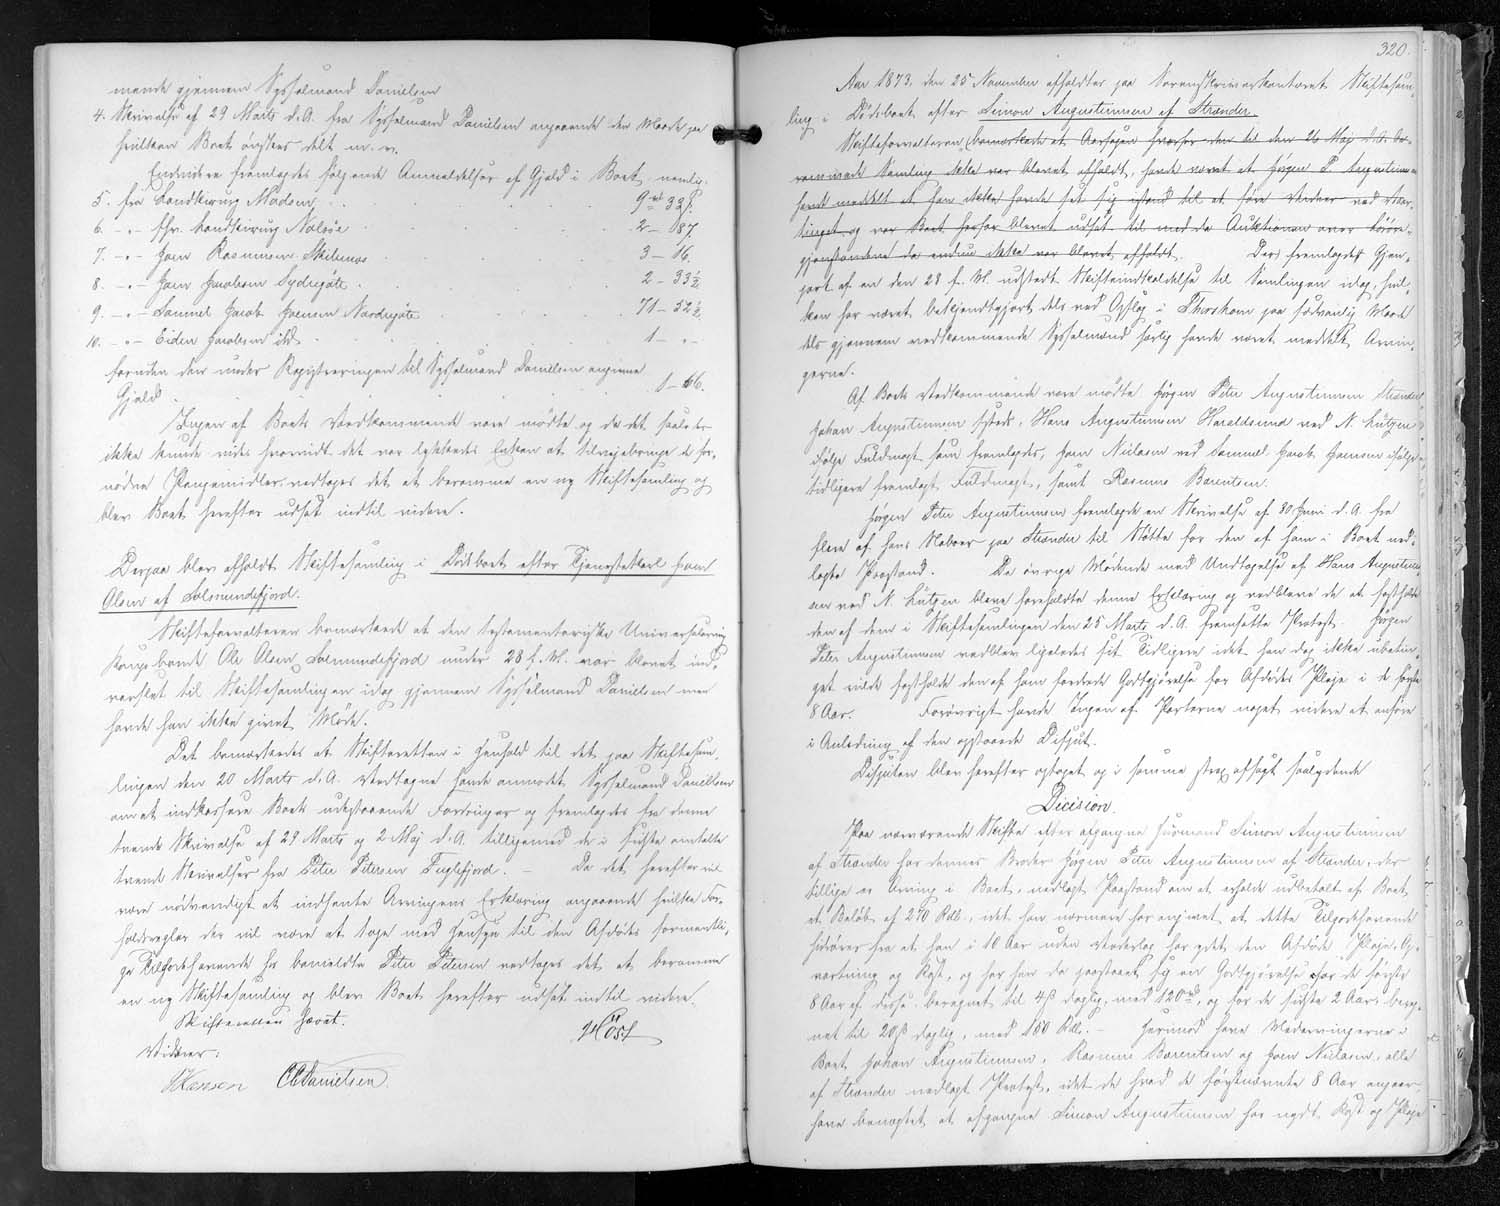 mænde gjennem Sysselmand Danielsen
4. Skrivelse af 29 Marts d.A. fra Sysselmand Danielsen angaaende den Maade paa
hvilken Boet ønskes delt m.v.
Endvidere fremlagdes følgende Anmeldelser af Gjæld i Boet, nemlig:
5. fra Landkirurg Madsen . . 9 rd 32 β.
6. -"- fhv. Landkirurg Nolsøe . . 2 - 87.
7. -"- Joen Rasmussen Skibenæs . . 3 - 16.
8. -"- Joen Jacobsen Sydregøte . . 2 - 33½
9. -"- Samuel Jacob Joensen Nordregøte . . 71 - 52½.
10. -"- Eiden Jacobsen ibd. . . 1 - "-
foruden den under Registreringen til Sysselmand Danielsen angivne
Gjæld . . 1 - 66.
Ingen af Boets Vedkommende vare mødte og da det saaledes
ikke kunde vides hvorvidt det var lykkedes Enken at tilveiebringe de for-
nødne Pengemidler, vedtoges det at beramme en ny Skiftesamling og
blev Boet herefter udsat indtil videre.
Derpaa blev afholdt Skiftesamling i Dødsboet efter Tjenestekarl Joen
Olsen af Solmundefjord.
Skifteforvalteren bemærkede at den testamentariske Universalarving
Kongsbonde Ole Olsen Solmundefjord under 28 f.M. var blevet ind-
varslet til Skiftesamlingen idag gjennem Sysselmand Danielsen men
havde han ikke givet Møde.
Det bemærkedes at Skifteretten i Henhold til det paa Skiftesam-
lingen den 20 Marts d.A. Vedtagne havde anmodet Sysselmand Danielsen
om at indkassere Boets udestaaende Fordringer og fremlagdes fra denne
tvende Skrivelser af 29 Marts og 2 Maj d.A. tilligemed de i sidste omtalte
tvende Skrivelser fra Peter Petersen Fuglefjord. - Da det herefter vil
være nødvendigt at indhente Arvingens Erklæring angaaende hvilke For-
holdsregler der vil være at tage med Hensyn til den Afdødes formentli-
ge Tilgodehavende hos bemeldte Peter Petersen vedtoges det at beramme
en ny Skiftesamling og blev Boet herefter udsat indtil videre.
Skifteretten hævet.
Høst
Vidner:
JHansen CCDanielsen.
320.
Aar 1873. den 25 November afholdtes paa Sorenskriverkontoret Skiftesam-
ling i Dødsboet efter Simon Augustinussen af Strænder.
Skifteforvalteren bemærkede at Aarsagen hvorfor den til den 26 Maj d.A. be-
rammede Samling ikke var blevet afholdt, havde været at Jørgen P Augustinussen
havde meddelt at han ikke havde set sig istand til at føre Vidner ved Vaar-
tinget og var Boet herfor blevet udsat til med da Auktionen over Løsøre-
gjenstandene da endnu ikke var blevet afholdt. Der fremlagdes Gjen-
part af en den 28 f.M. udstedt Skifteindkaldelse til Samlingen idag, hvil-
ken har været bekjendtgjort dels ved Opslag i Thorshavn paa sædvanlig Maade
dels gjennem vedkommende Sysselmænd særlig havde været meddelt Arvin-
gerne.
Af Boets Vedkommende vare mødte Jørgen Peter Augustinussen Strænder,
Johan Augustinussen sysseds, Hans Augustinussen Haraldssund ved N. Lützen
ifølge Fuldmagt som fremlagdes, Joen Niclasen ved Samuel Jacob Hansen ifølge
tidligere fremlagt Fuldmagt, samt Rasmus Barentsen.
Jørgen Peter Augustinussen fremlagde en Skrivelse af 30 Juni d.A. fra
flere af hans Naboer paa Strænder til Støtte for den af ham i Boet ned-
lagte Paastand. De øvrige Mødende med Undtagelse af Hans Augustinus-
sen ved N. Lützen bleve foreholdte denne Erklæring og vedbleve de at fastholde
den af dem i Skiftesamlingen den 25 Marts d.A. fremsatte Protest. Jørgen
Peter Augustinussen vedblev ligeledes sit Tidligere idet han dog ikke ubetin-
get vilde fastholde den af ham fordrede Godtgjørelse for Afdødes Pleje i de første
8 Aar. Forøvrigt havde Ingen af Parterne noget videre at anføre
i Anledning af den opstaaede Disput.
Disputen blev herefter optaget og i samme strax afsagt saalydende
Dicision.
Paa nærværende Skifte efter afgangne Huusmand Simon Augustinussen
af Strænder har dennes Broder Jørgen Peter Augustinussen af Strænder, der
tillige er Arving i Boet, nedlagt Paastand om at erholde udbetalt af Boet
et Beløb af 270 Rdl., idet han nærmere har angivet at dette Tilgodehavende
hidrører fra at han i 10 Aar uden Vederlag har ydet den Afdøde Pleje, Op-
vartning og Kost, og har han da paastaaet sig en Godtgjørelse for de første
8 Aar af disse beregnet til 4 β daglig, med 120 rd, og for de sidste 2 Aar, bereg-
net til 20 β daglig, med 150 Rdl. - Herimod have Medarvingerne i
Boet Johan Augustinussen, Rasmus Barentsen og Joen Niclasen, alle
af Strænder nedlagt Protest, idet de hvad de førstnævnte 8 Aar angaar,
have benægtet at afgangne Simon Augustinussen har nydt Kost og Pleje